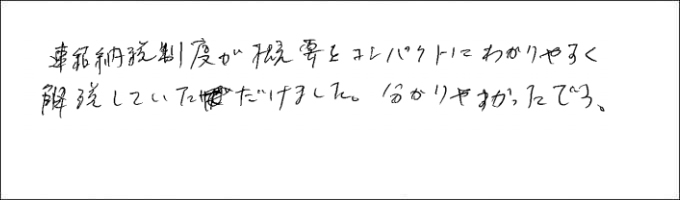 連結納税制度が概要をコンパクトにわかりやすく
解説していただけました。分かりやすかったです。